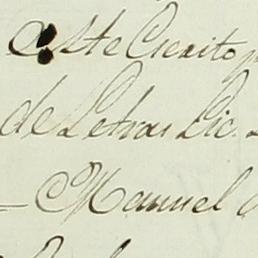 este Escrito p
de Letras Lic.
- Manuel d